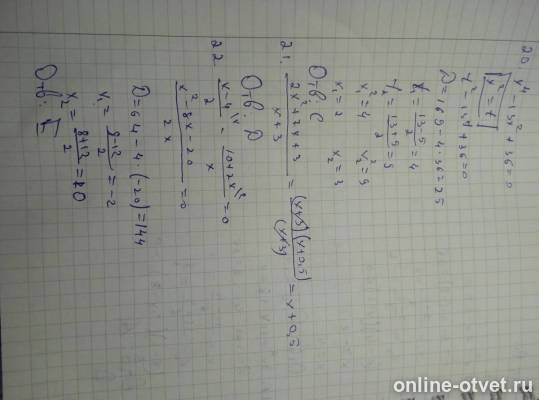 20. x⁴ - 13x² + 36 = 0
x² = t
t² - 13t + 36 = 0
D = 169 - 4·36 = 25
t₁ = (13-5)/2 = 4
t₂ = (13+5)/2 = 9
x² = 4 x² = 9
x₁ = 2 x₂ = 3
Отв: C
21. (2x + 2x + 3)/(x + 3) = (x+3)(x+0,5)/(x+3) = x + 0,5
Отв: D
22. (x-4)/2 - (10+2x)/x = 0
(x² - 8x - 20)/2x = 0
D = 64 - 4·(-20) = 144
x₁ = (8-12)/2 = -2
x₂ = (8+12)/2 = 10
Отв: E
online-otvet.ru